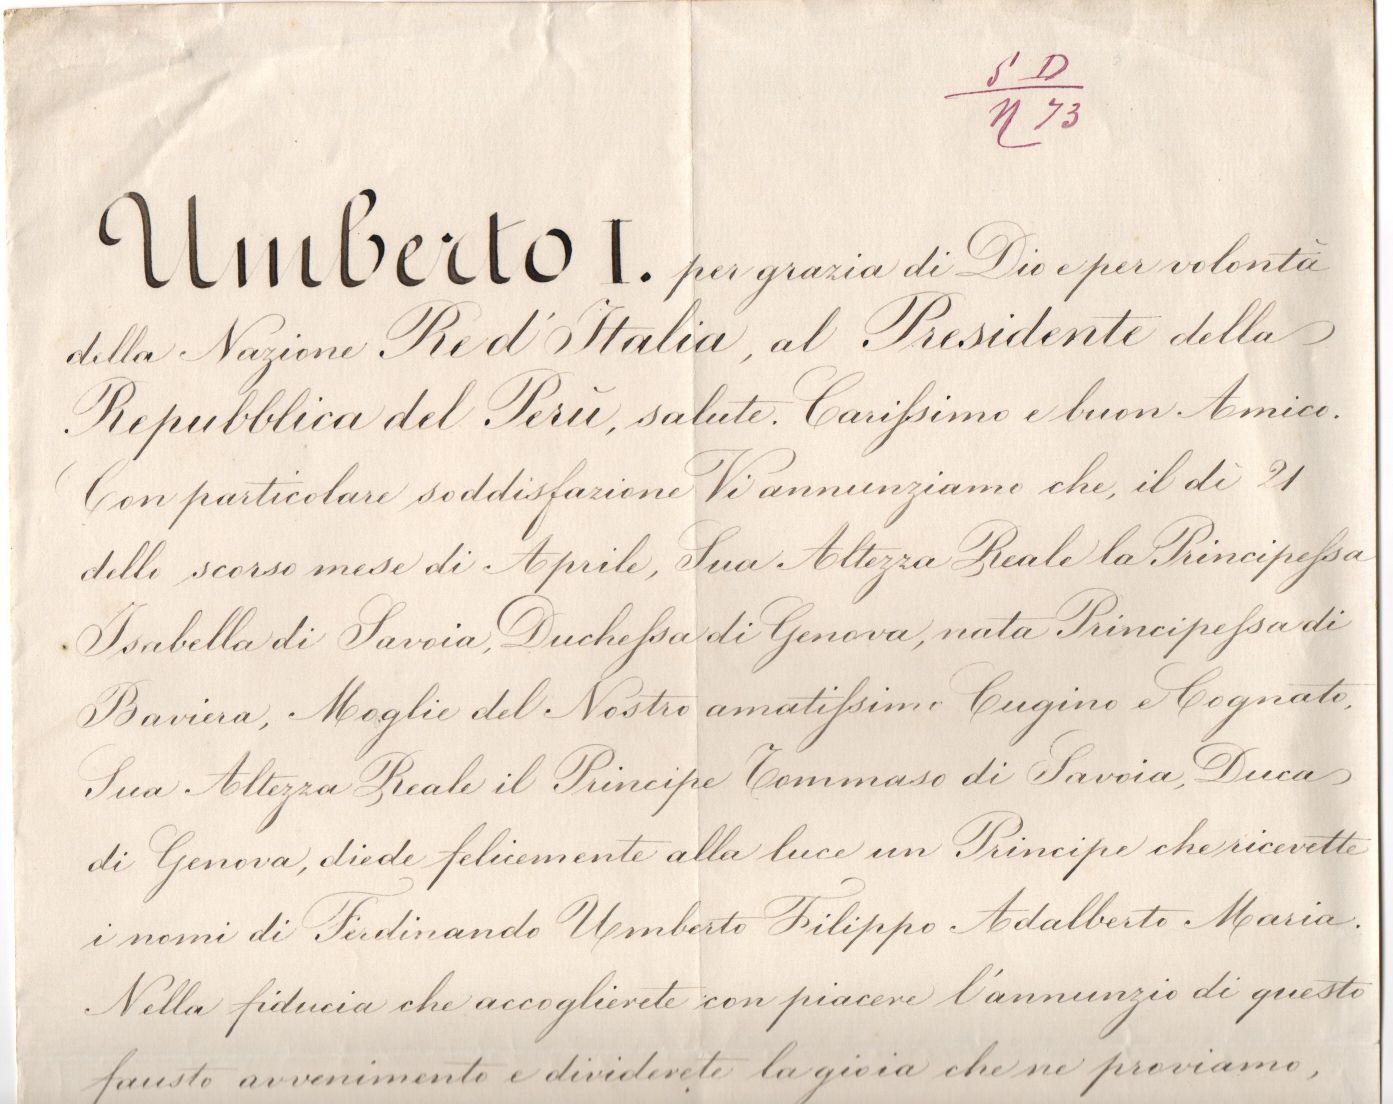 5 D
N 73
Umberto I. per grazia di Dio e per volontà
della Nazione Re d'Italia, al Presidente della
Repubblica del Perù, salute. Carissimo e buon Amico.
Con particolare soddisfazione Vi annunziamo che, il dì 21
dello scorso mese di Aprile, Sua Altezza Reale la Principessa
Isabella di Savoia, Duchessa di Genova, nata Principessa di
Baviera, Moglie del Nostro amatissimo Cugino e Cognato,
Sua Altezza Reale il Principe Tommaso di Savoia, Duca
di Genova, diede felicemente alla luce un Principe che ricevette
i nomi di Ferdinando Umberto Filippo Adalberto Maria.
Nella fiducia che accoglierete con piacere l'annunzio di questo
fausto avvenimento e dividerete la gioia che ne proviamo,